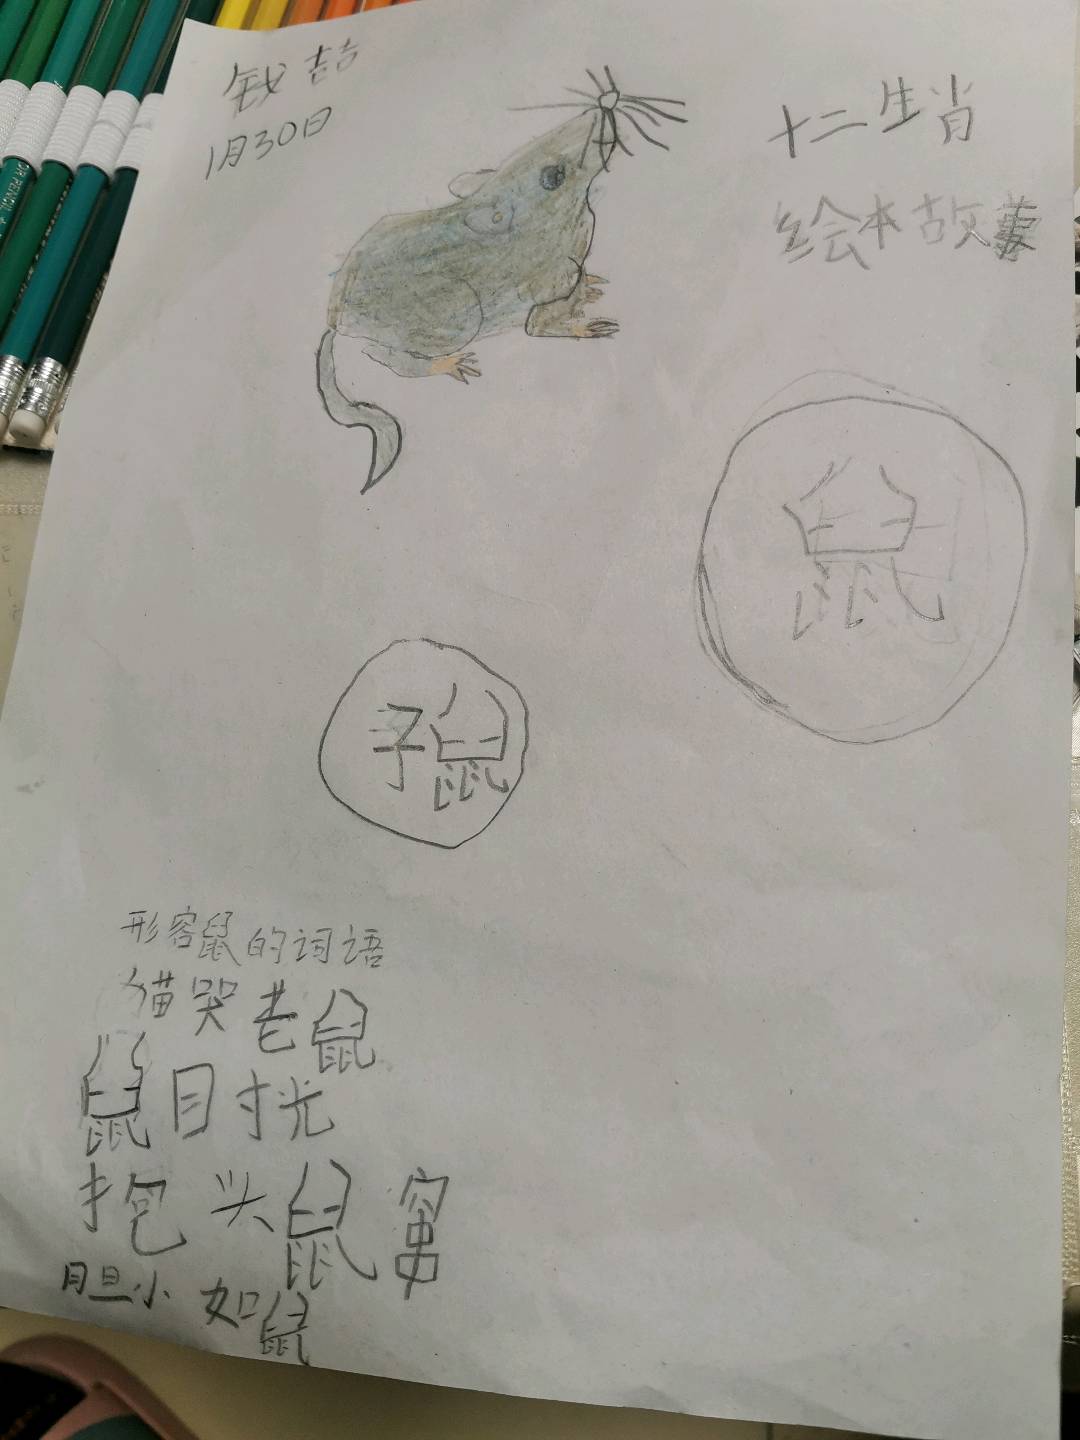 钱喆
1月30日
十二生肖
绘本故事
鼠
子鼠
形容鼠的词语
猫哭老鼠
鼠目寸光
抱头鼠窜
胆小如鼠